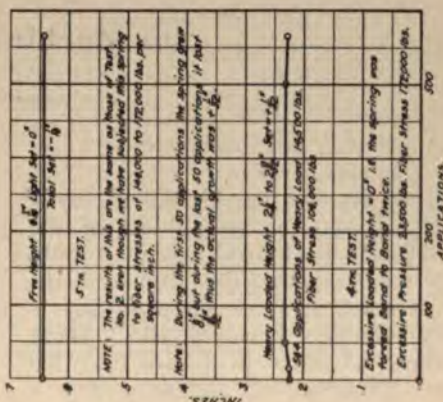 Free Height 8 Light Set = 0"
Total Set = -
5TH. TEST.
NOTE: The results of this are the same as those of Test
No. 2 even though we have subjected this spring
to fiber stresses of 148,000 to 172,000 lbs. per
square inch.
Note: During the first 50 applications the spring grew
but during the last 50 applications it lost
thus the actual growth was +
Heavy Loaded Height 2 to 2 Set = +
584 Applications of Heavy Load 14,500 lbs.
Fiber Stress 108,000 lbs
4TH. TEST.
Excessive Loaded Height = 0" i.e. the spring was
forced Band to Band twice.
Excessive Pressure 23,500 lbs. Fiber Stress 172,000 lbs.
INCHES.
7
.6
.5
.4
.3
.2
.1
0
100
200
500
APPLICATIONS